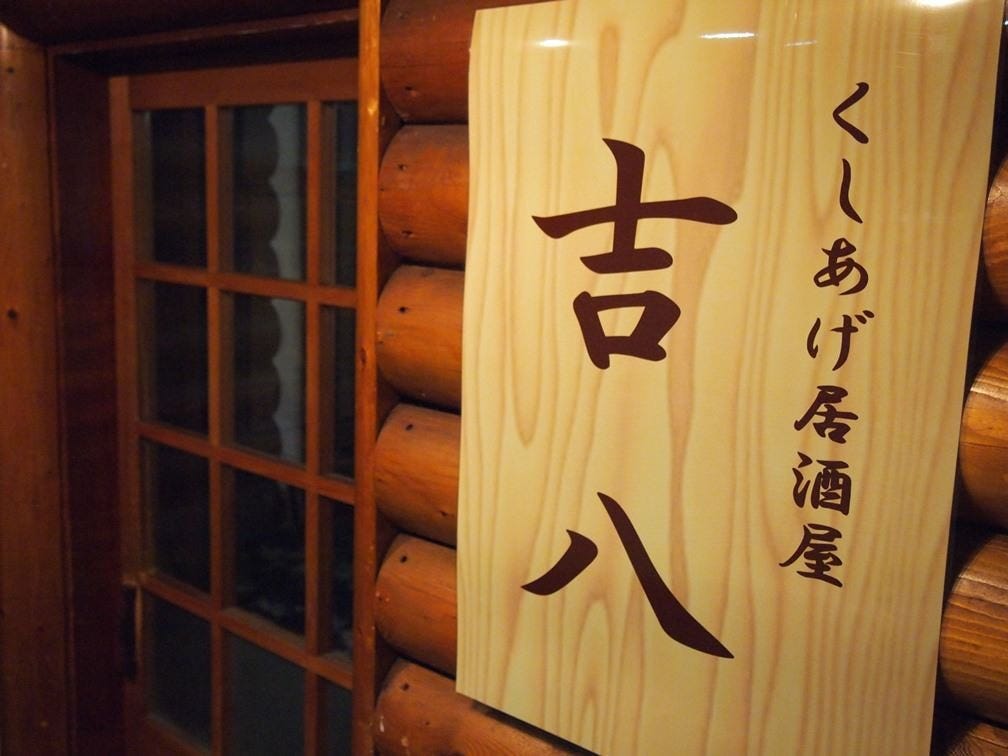 くしあげ居酒屋
吉八